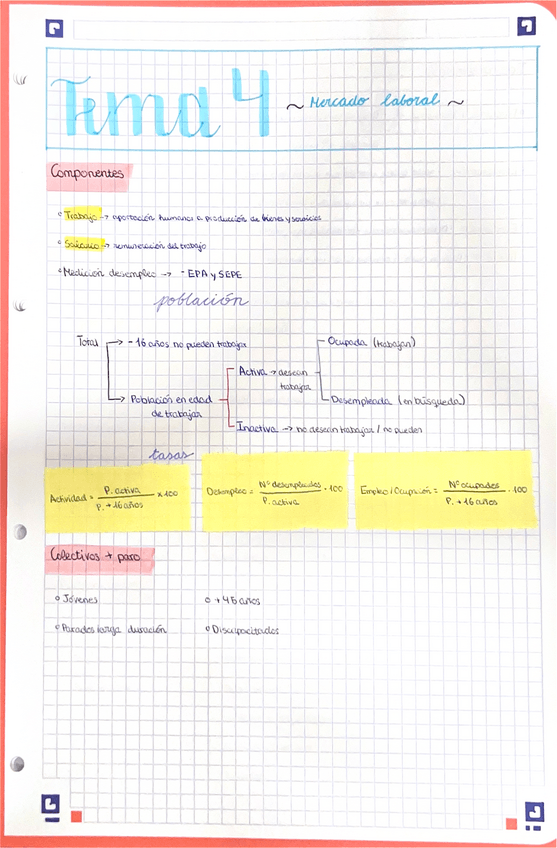 Tema 4 ~ Mercado laboral ~
Componentes
° Trabajo → aportación humana a producción de bienes y servicios
° Salario → remuneración del trabajo
° Medición desempleo → - EPA y SEPE
población
Total → - 16 años no pueden trabajar
Ocupada (trabajan)
Activa → desean
trabajar
→ Población en edad
de trabajar
Desempleada (en búsqueda)
Inactiva → no desean trabajar / no pueden
tasas
Actividad = P. activa / P. + 16 años × 100
Desempleo = Nº desempleados / P. activa · 100
Empleo / Ocupación = Nº ocupados / P. + 16 años · 100
Colectivos + paro
° Jóvenes
° + 45 años
° Parados larga duración
° Discapacitados